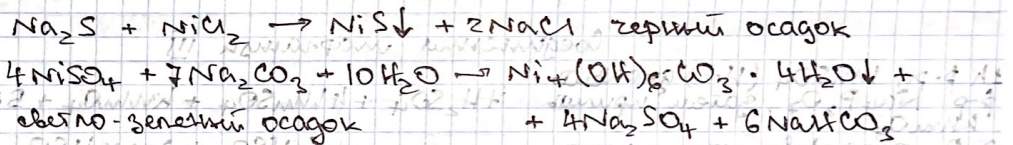 Na₂S + NiCl₂ → NiS↓ + 2NaCl черный осадок
4NiSO₄ + 7Na₂CO₃ + 10H₂O → Ni₄(OH)₆CO₃ · 4H₂O↓ +
светло-зеленый осадок + 4Na₂SO₄ + 6NaHCO₃